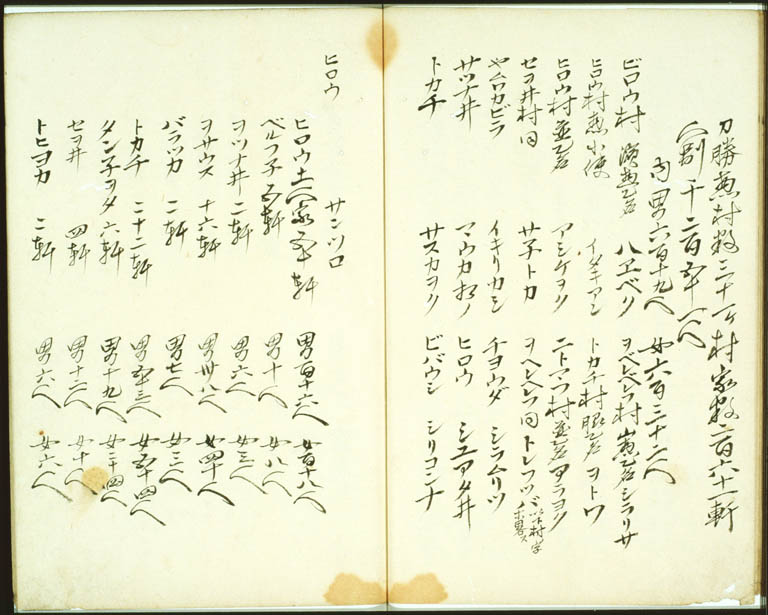 刀勝蕙村数三十ケ村 家数二百六十一軒
人別千二百五十一人
内男六百十九人 女六百三十二人
ビロウ村 八ヱベク ヲベレベレフ村 シラリサ
ヒロウ村 小使 イタキアシ トカチ村 ヲトワ
ヒロウ村 アシケヲク ニトマフ村 アラヨク
セヲ井村 同 サ子トカ ヲヘレヘレフ 同 トレフツバ 以下村字ノ不署ス
ヤムロカビラ イキリカシ チヨウダ シラムリツ
サツナ井 マウカ ヒロウ シユアタ井
トカチ サスカヲク ビバウシ シリコシナ
ヒロウ サンツロ
ヒロウ土人家 五十軒 男百十六人 女百十八人
ベルフ子 五軒 男十人 女八人
ヲツナ井 二軒 男六人 女三人
ヲサウス 十六軒 男卅八人 女四十人
バラツカ 二軒 男七人 女三人
トカチ 二十二軒 男五十三人 女五十四人
タン子ヲタ 六軒 男十九人 女二十四人
セヲ井 四軒 男十二人 女十人
トヒヨカ 二軒 男六人 女六人